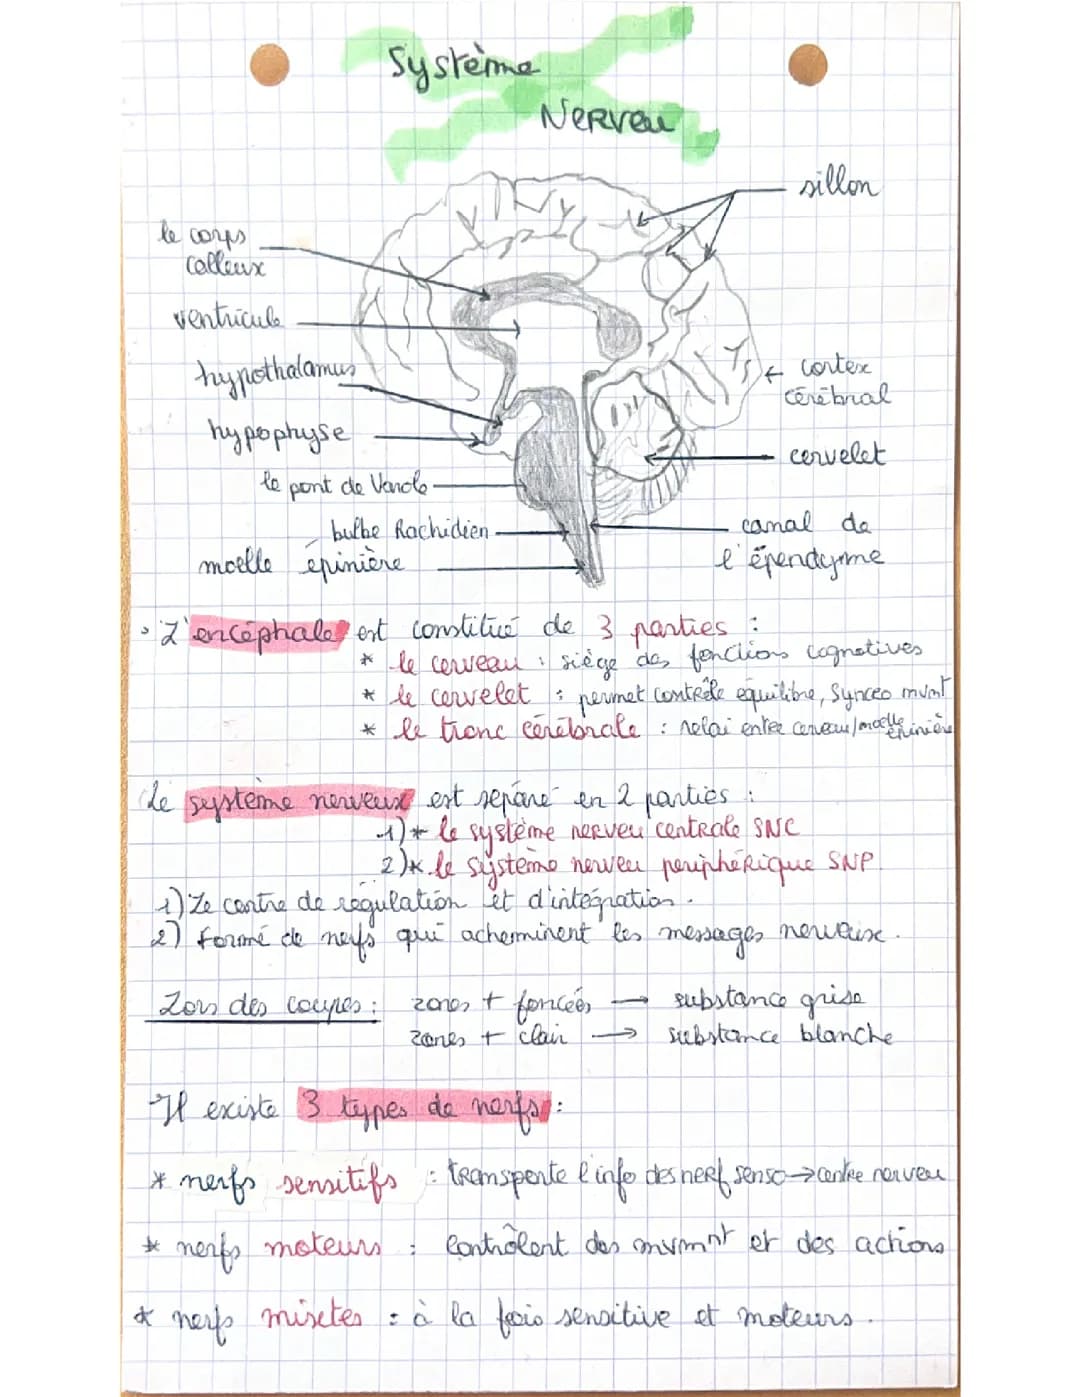 Système
Nerveu
sillon
le corps
calleux
ventricule
hypothalamus
cortex
cérébral
hypophyse
cervelet
le pont de Varole
bulbe Rachidien
canal de
l'épendyme
moelle épinière
• L'encéphale est constitué de 3 parties :
* le cerveau : siège des fonctions cognatives
* le cervelet : permet contrôle équilibre, Synceo mvmt
* le tronc cérébrale : relai entre cerveau/moelle épinière
Le système nerveux est séparé en 2 parties :
1) * le système nerveu centrale SNC
2) * le système nerveu periphérique SNP.
1) Le centre de régulation et d'intégration.
2) Formé de nerfs qui acheminent les messages nerveux.
Lors des coupes : zones + foncées → substance grise
zones + clair → substance blanche
Il existe 3 types de nerfs :
* nerfs sensitifs : transporte l'info des nerf senso → centre nerveu
* nerfs moteurs : Contrôlent des mvmnt et des actions
* nerfs mixtes : à la fois sensitive et moteurs.